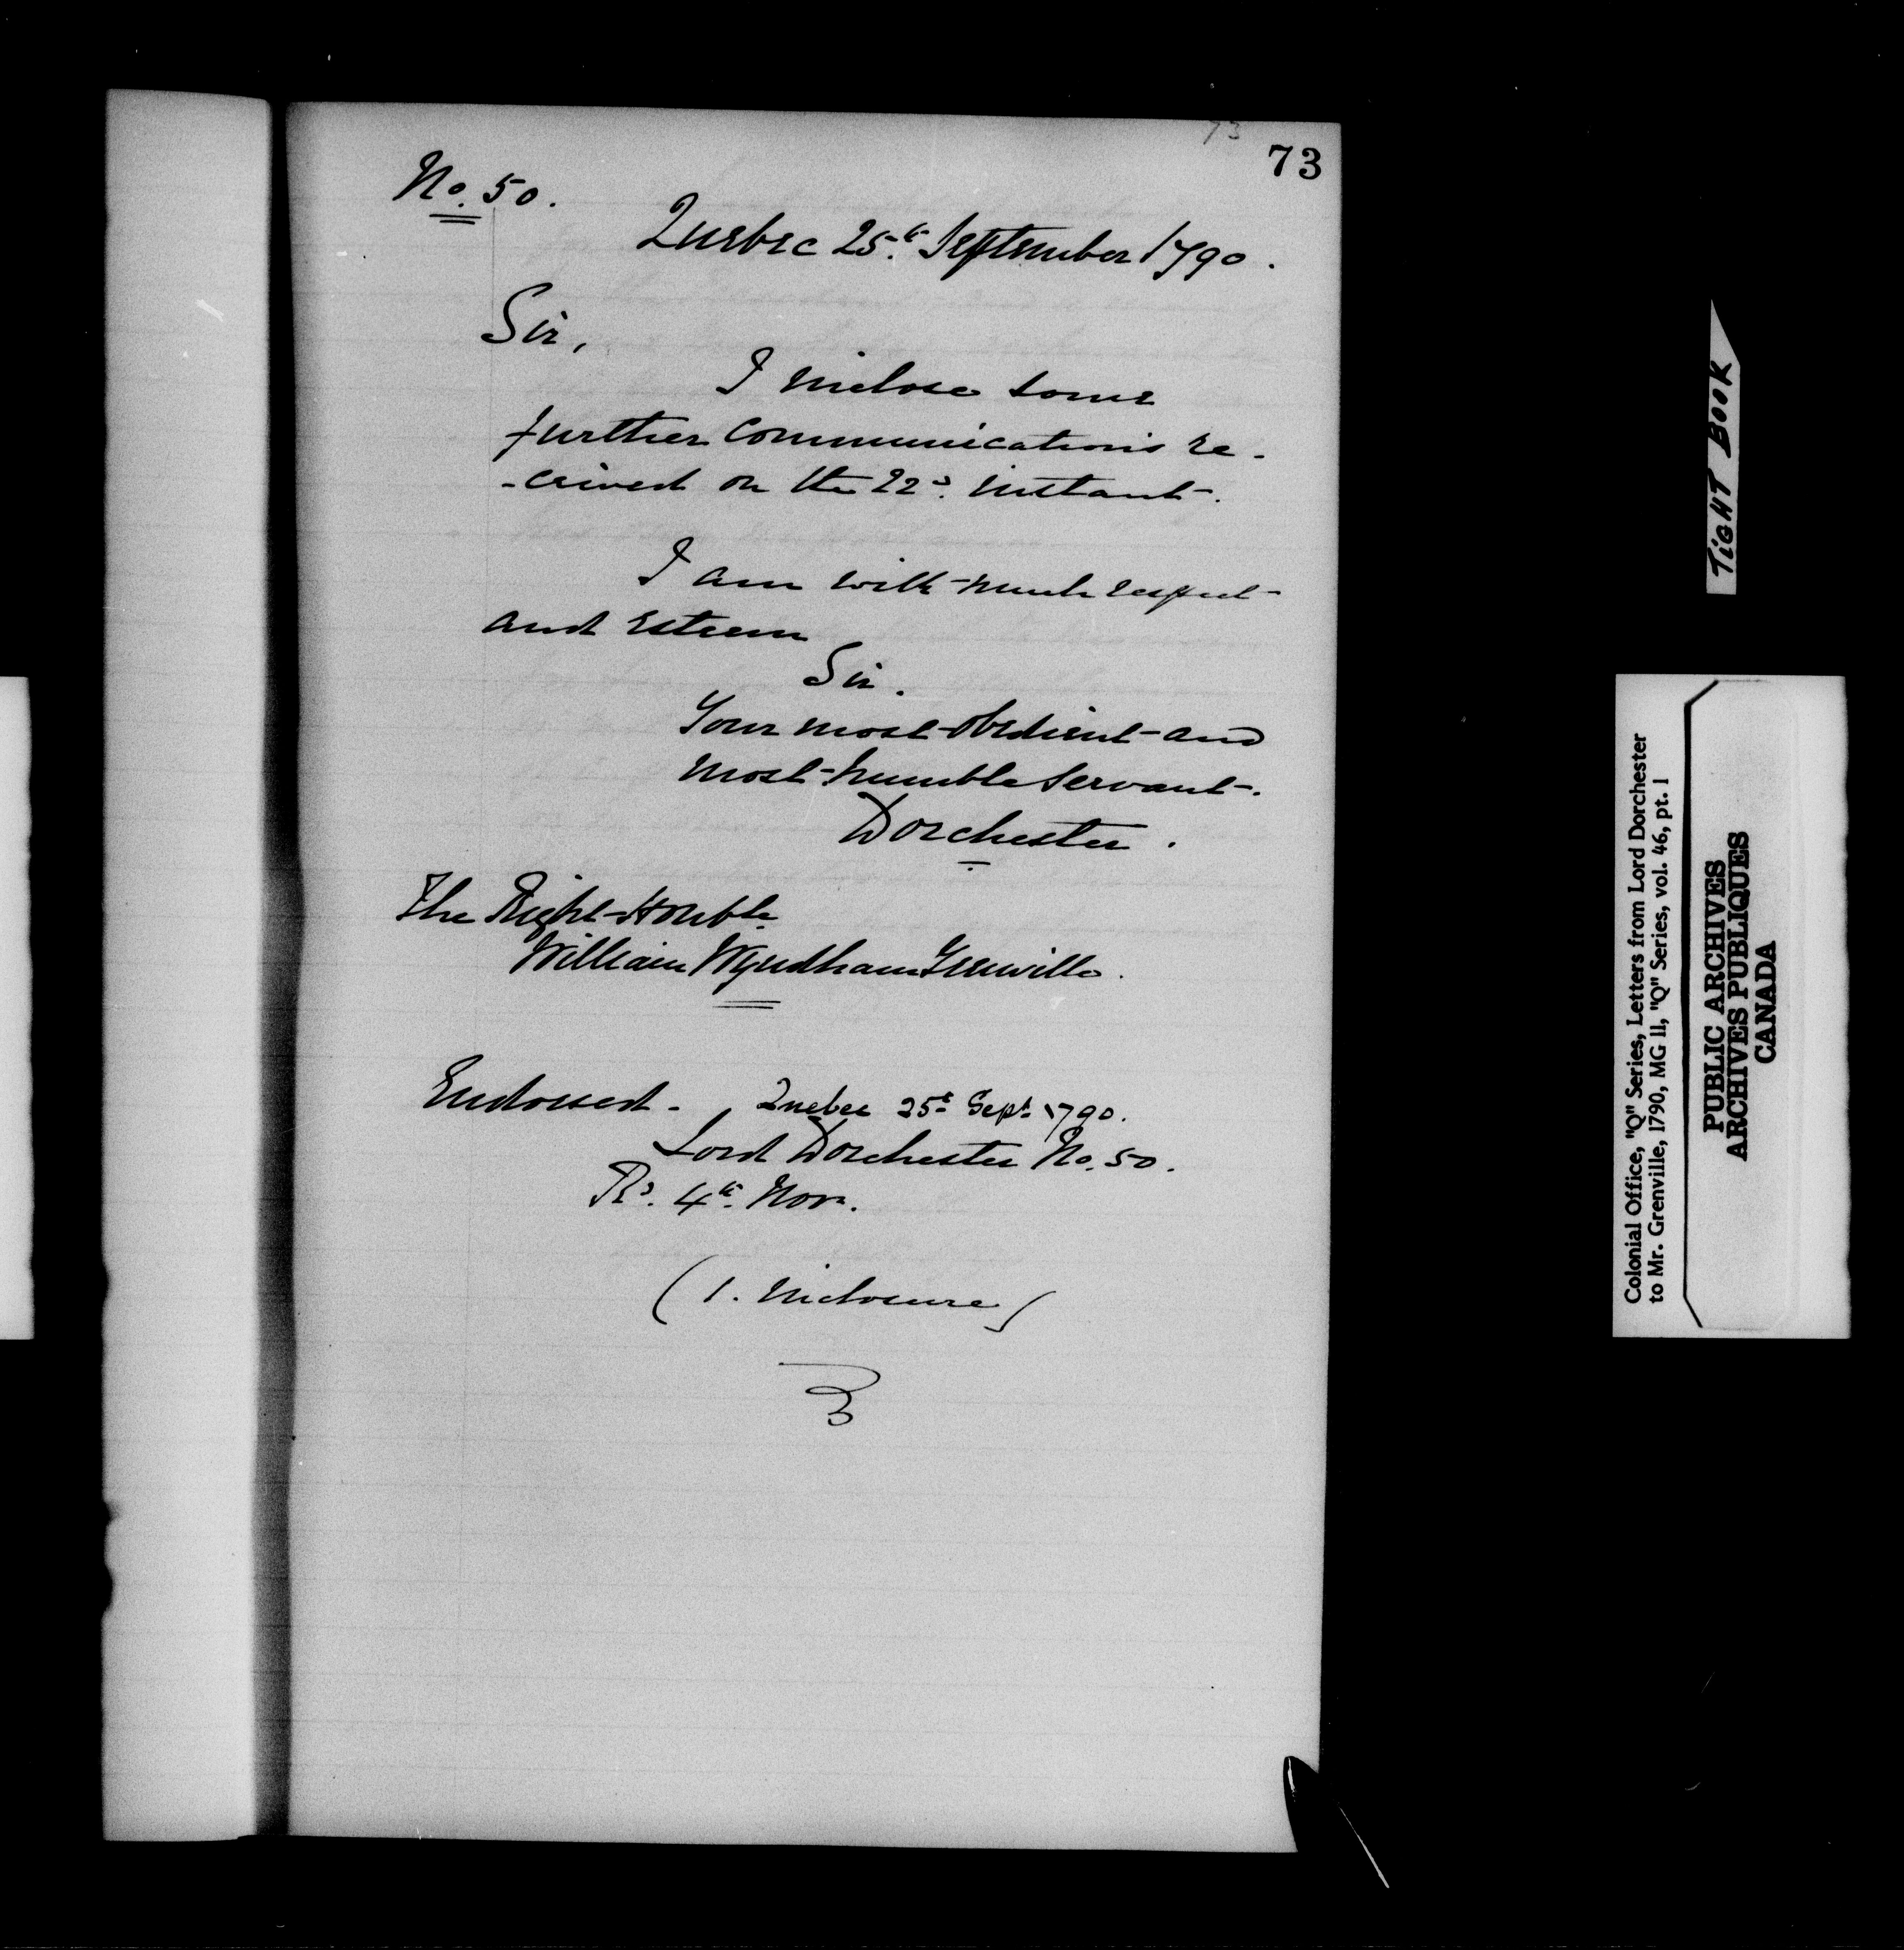 73
73
No. 50.
Quebec 25th. September 1790.
Sir,
I inclose some
further communications re-
-ceived on the 22d. instant.
I am with much respect
and esteem
Sir.
Your most obedient and
most humble Servant.
Dorchester.
The Right Honble.
William Wyndham Grenville.
Endorsed - Quebec 25th Sept. 1790.
Lord Dorchester No. 50.
Rd. 4th. Novr.
(1. Inclosure)
TIGHT BOOK
Colonial Office, "Q" Series, Letters from Lord Dorchester
to Mr. Grenville, 1790, MG 11, "Q" Series, vol. 46, pt. 1
PUBLIC ARCHIVES
ARCHIVES PUBLIQUES
CANADA